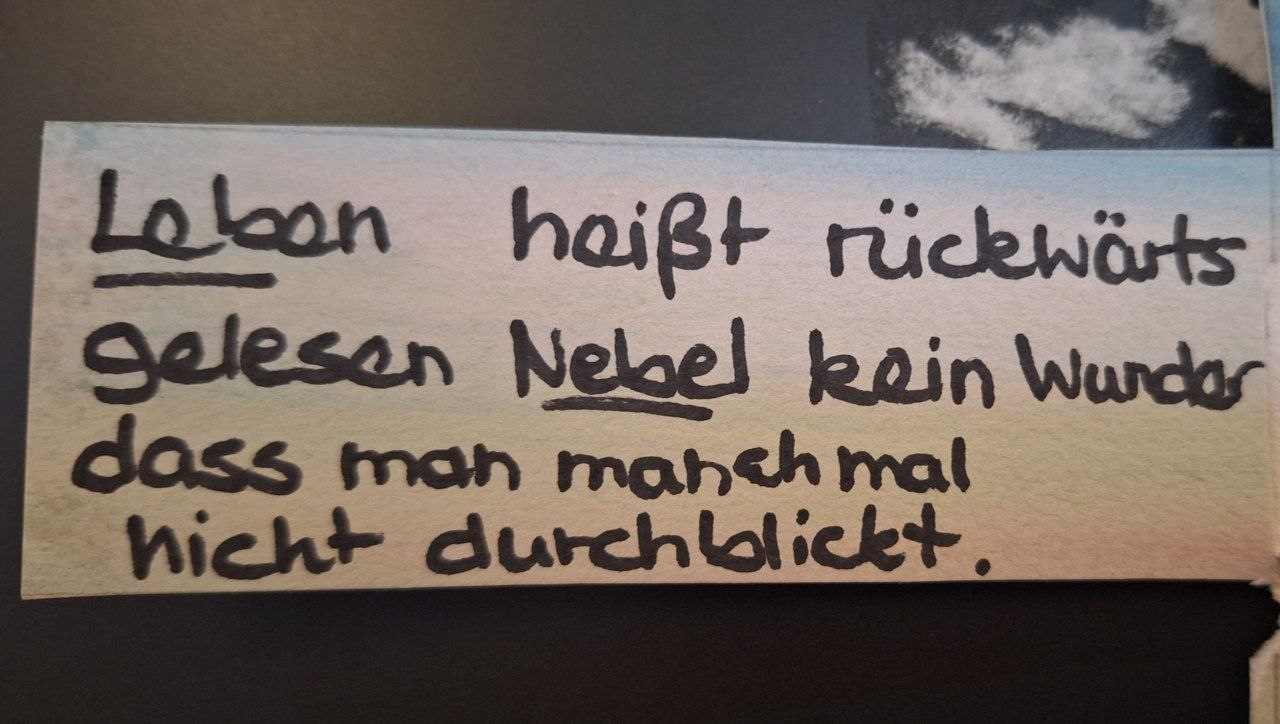 Leben heißt rückwärts
gelesen Nebel kein Wunder
dass man manchmal
nicht durchblickt.